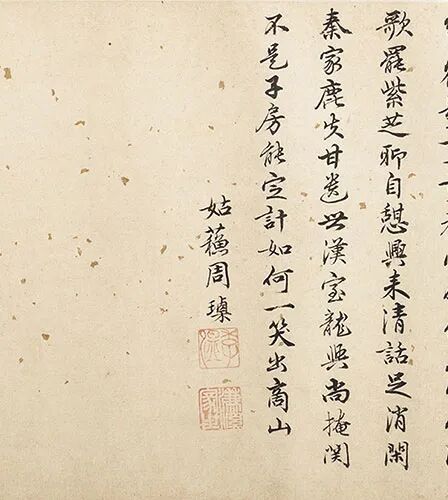 歌罷紫芝聊自憇興来清話足消閑
秦家鹿失甘世漢室龍興尚掩関
不是子房能定計如何一笑出商山
姑蘇周